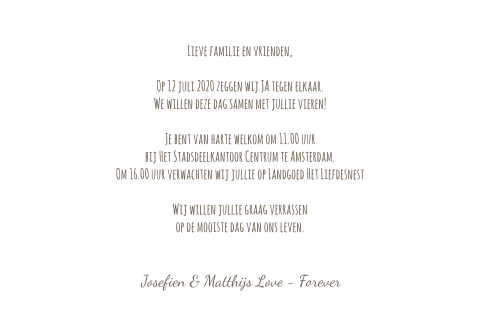 Lieve familie en vrienden,
Op 12 juli 2020 zeggen wij JA tegen elkaar.
We willen deze dag samen met jullie vieren!
Je bent van harte welkom om 11.00 uur
bij Het Stadsdeelkantoor Centrum te Amsterdam.
Om 16.00 uur verwachten wij jullie op Landgoed Het Liefdesnest
Wij willen jullie graag verrassen
op de mooiste dag van ons leven.
Josefien & Matthijs Love - Forever